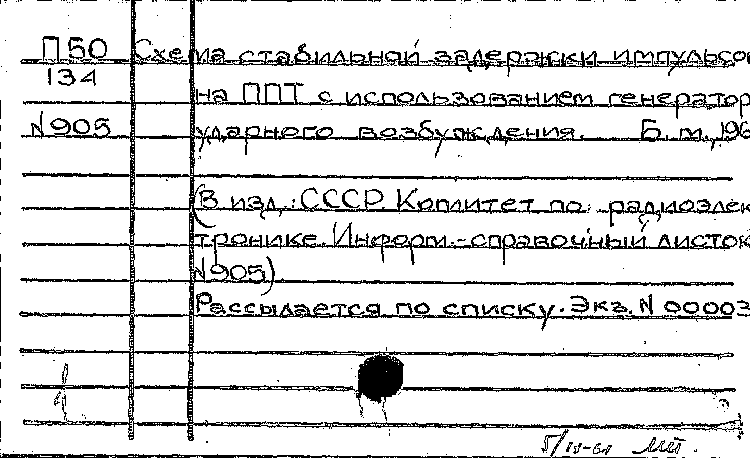 П50 Схема стабильной задержки импульсов
134
на ППТ с использованием генератор
N905 ударного возбуждения. Б.м., 196
(В изд.: СССР Комитет по радиоэлек
тронике. Информ.-справочный листок
N905)
Рассылается по списку. Экз. N 00003